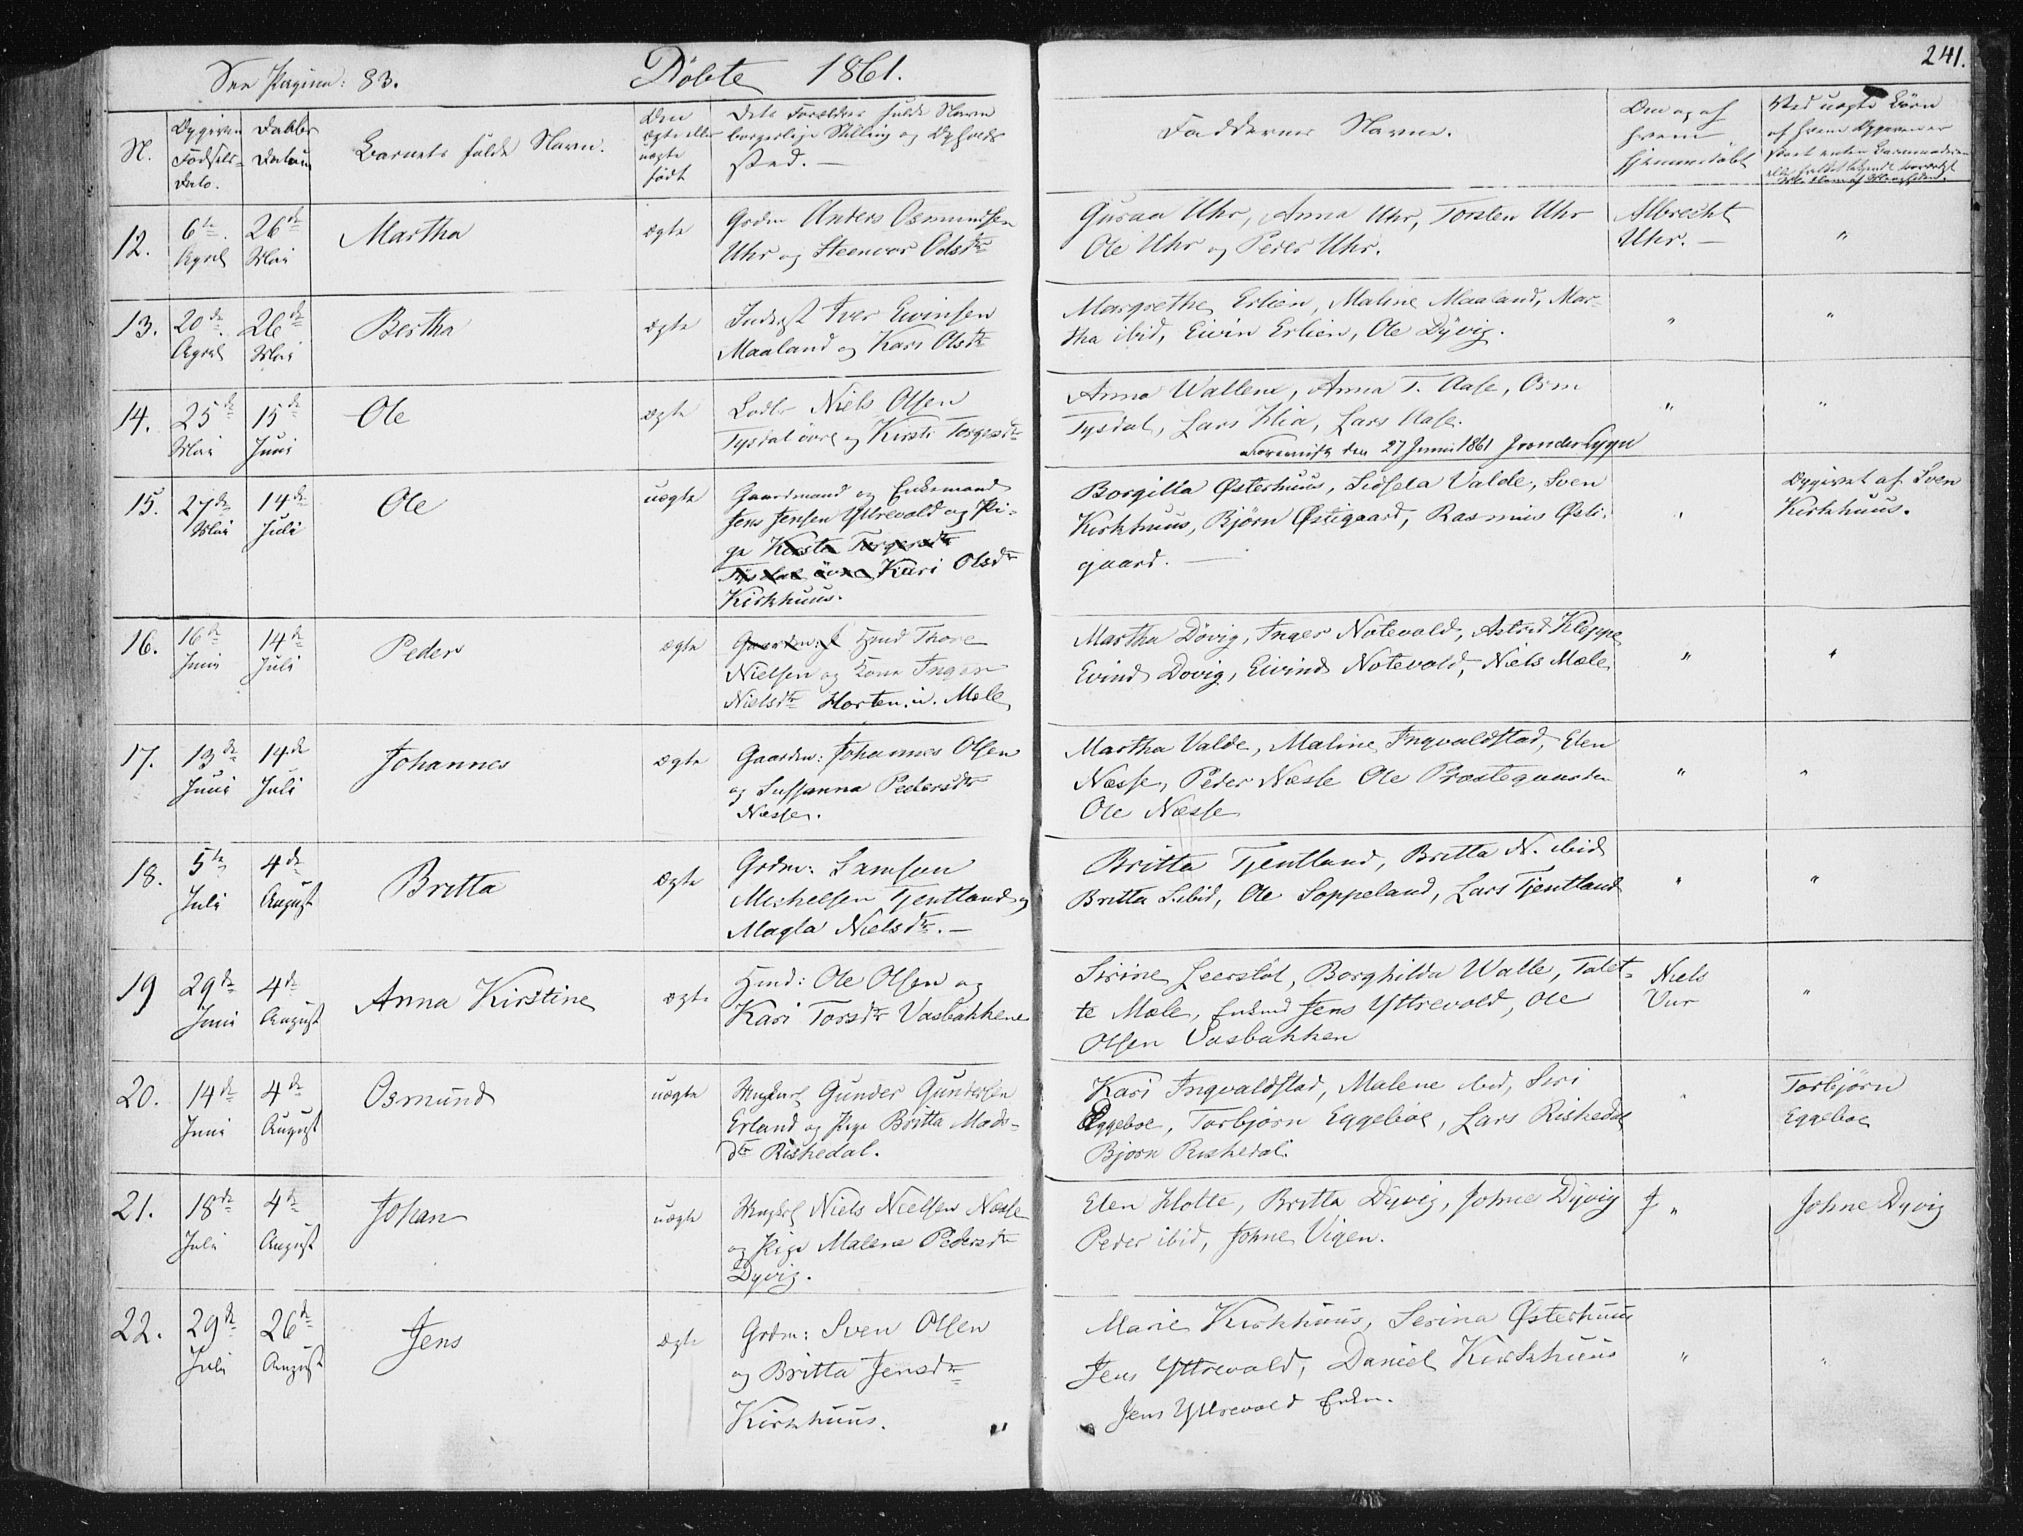 241.
See Pagina: 83. Døbte 1861.
N.
Opgiven Fødsels-Dato.
Daabs Datum
Barnets fulde Navn.
Om ægte eller uægte født
Dets Forældres fulde Navn borgerlige Stilling og Opholds sted. —
Faddernes Navne.
Om og af hvem hjemmedøbt
Ved uægte Børn af hvem Opgaven er
12. 6te April 26de Mai Martha ægte
Grdm Anders Osmundsen
Uhr og Steenvor Olsdtr
Guraa Uhr, Anna Uhr, Torsten Uhr
Ole Uhr og Peder Uhr.
Albrecht
Uhr. —
"
13. 20de April 26de Mai Bertha ægte
Inderst Iver Eivinsen
Maaland og Kari Olsdtr
Margrethe Erlien, Maline Maaland, Mar-
tha ibid, Eivin Erlien, Ole Dÿvig.
" "
14. 25de Mai 15de Juni Ole ægte
Niels Olsen
Tysdal övre og Kirsti Torgersdtr
Anna Wallem, Anna T. Aase, Osm
Tysdal, Lars Klia, Lars Aase.
" "
den 27 Juni 1861
15. 27de Mai 14de Juli Ole uægte
Gaardmand og Enkemand
Jens Jensen Yttrevold og Pi-
ge Kirsta Torgersdtr
Tysdal övre Kari Olsdtr
Kirkhuus.
Borgilla Østerhuus, Sidsela Valde, Sven
Kirkhuus, Bjørn Østegaard, Rasmus Øste-
gaard. —
Opgivet af Sven
Kirkhuus.
16. 16de Juni 14de Juli Peder ægte
Hmd Thore
Nielsen og Kone Inger
Nielsdtr Horten u. Mæle
Martha Dövig, Inger Notevold, Astrid Kleppe
Eivind Dovig, Eivind Notevold, Niels Mæle.
" "
17. 13de Juni 14de Juli Johannes ægte
Gaardm: Johannes Olsen
og Susanna Pedersdtr
Næsse.
Martha Valde, Maline Ingvaldstad, Elen
Næsse, Peder Næsse Ole Præstegaarden
Ole Næsse
" "
18. 5te Juli 4de August Britta ægte
Grdm: Samson
Michelsen Tjentland og
Magla Nielsdtr. —
Britta Tjentland, Britta N. ibid
Britta S. ibid, Ole Soppeland, Lars Tjentland
" "
19 29de Juni 4de August Anna Kirstine ægte
Hmd: Ole Olsen og
Kari Torsdtr Vasbakkene
Sirine Leerstøl, Borghilda Walle, Talet-
te Mæle, Enkmd Jens Yttrevold, Ole
Olsen Vasbakken
Niels
Uur
"
20. 14de Juni 4de August Osmund uægte
Ungkarl Gunder Gundersen
Erland og Pige Britta Mads-
dtr Riskedal.
Kari Ingvaldstad, Malene ibid, Siri
Eggeboe, Torbjørn Eggeboe, Lars Riskedal
Bjørn Riskedal.
"
Torbjørn
Eggeboe
21. 18de Juli 4de August Johan uægte
Ungkarl Niels Nielsen Næsse
og Pige Malene Pedersdtr
Dyvig.
Elen Holte, Britta Dÿvig, Johne Dÿvig
Peder ibid, Johne Vigen.
J "
Johne Dyvig
22. 29de Juli 26de August Jens ægte
Grdm: Sven Olsen
og Britta Jensdtr
Kirkhuus.
Marie Kirkhuus, Serina Østerhuus
Jens Yttrevold, Daniel Kirkhuus
Jens Yttrevold Enkm.
" "